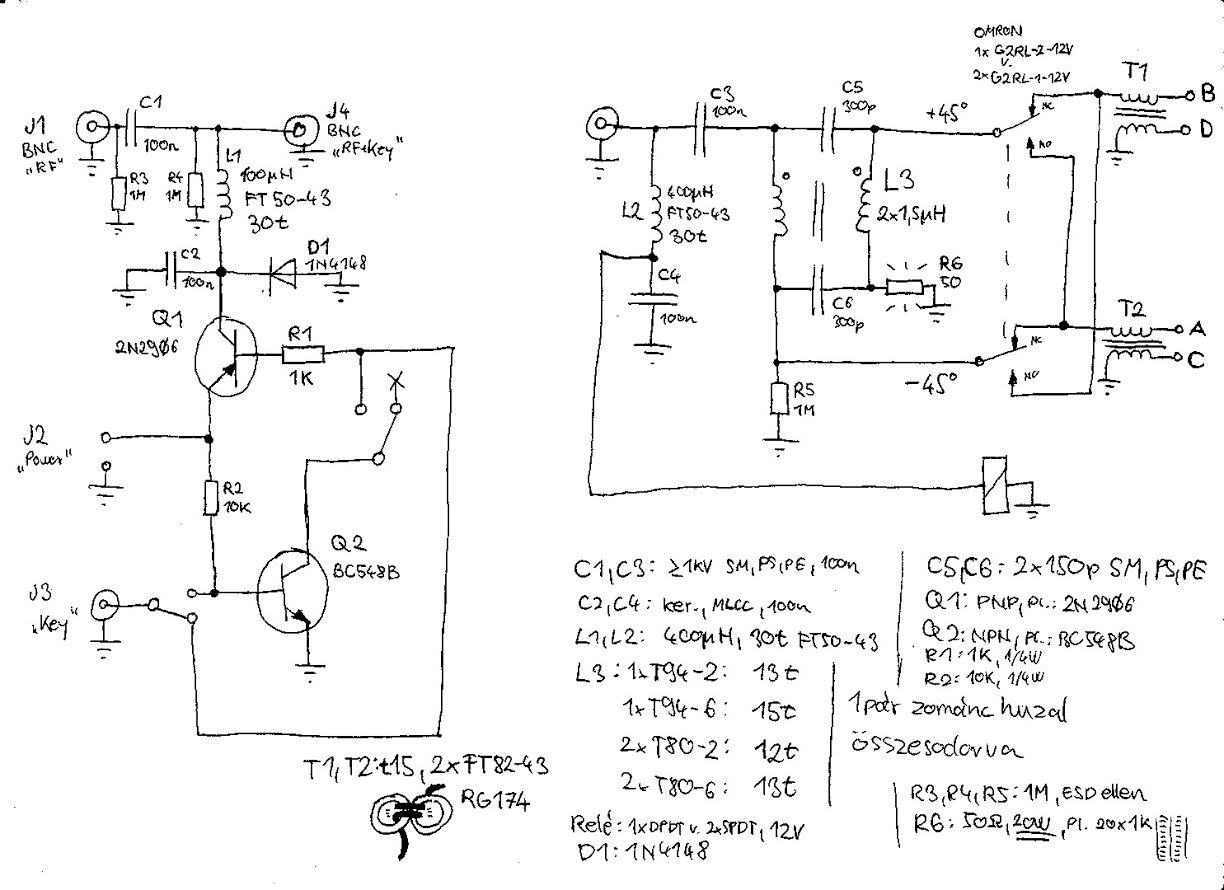 OMRON
1x G2RL-2-12V
v.
2xG2RL-1-12V
J1
BNC
"RF"
C1
100n
J4
BNC
"RF+Key"
R3
1M
R4
1M
L1
100µH
FT50-43
30t
C2
100n
D1
1N4148
Q1
2N2906
R1
1K
X
J2
"Power"
R2
10K
Q2
BC548B
J3
"Key"
C3
100n
C5
300p
+45°
NC
NO
T1
B
D
L2
400µH
FT50-43
30t
L3
2x1,5µH
C4
100n
C6
300p
R6
50
T2
A
C
NC
NO
-45°
R5
1M
C1,C3: ≥1KV SM,PS,PE, 100n
C2,C4: ker., MLCC, 100n
L1,L2: 400µH, 30t FT50-43
L3: 1xT94-2: 13t
1xT94-6: 15t
2xT80-2: 12t
2xT80-6: 13t
Relé: 1xDPDT v. 2xSPDT, 12V
D1: 1N4148
C5,C6: 2x150p SM,PS,PE
Q1: PNP, Pl.: 2N2906
Q2: NPN, Pl.: BC548B
R1: 1K, 1/4W
R2: 10K, 1/4W
1pár zománc huzal
összesodorva
R3,R4,R5: 1M, ESD ellen
R6: 50Ω, 20W, Pl. 20x1K
T1,T2: t15, 2xFT82-43
RG174